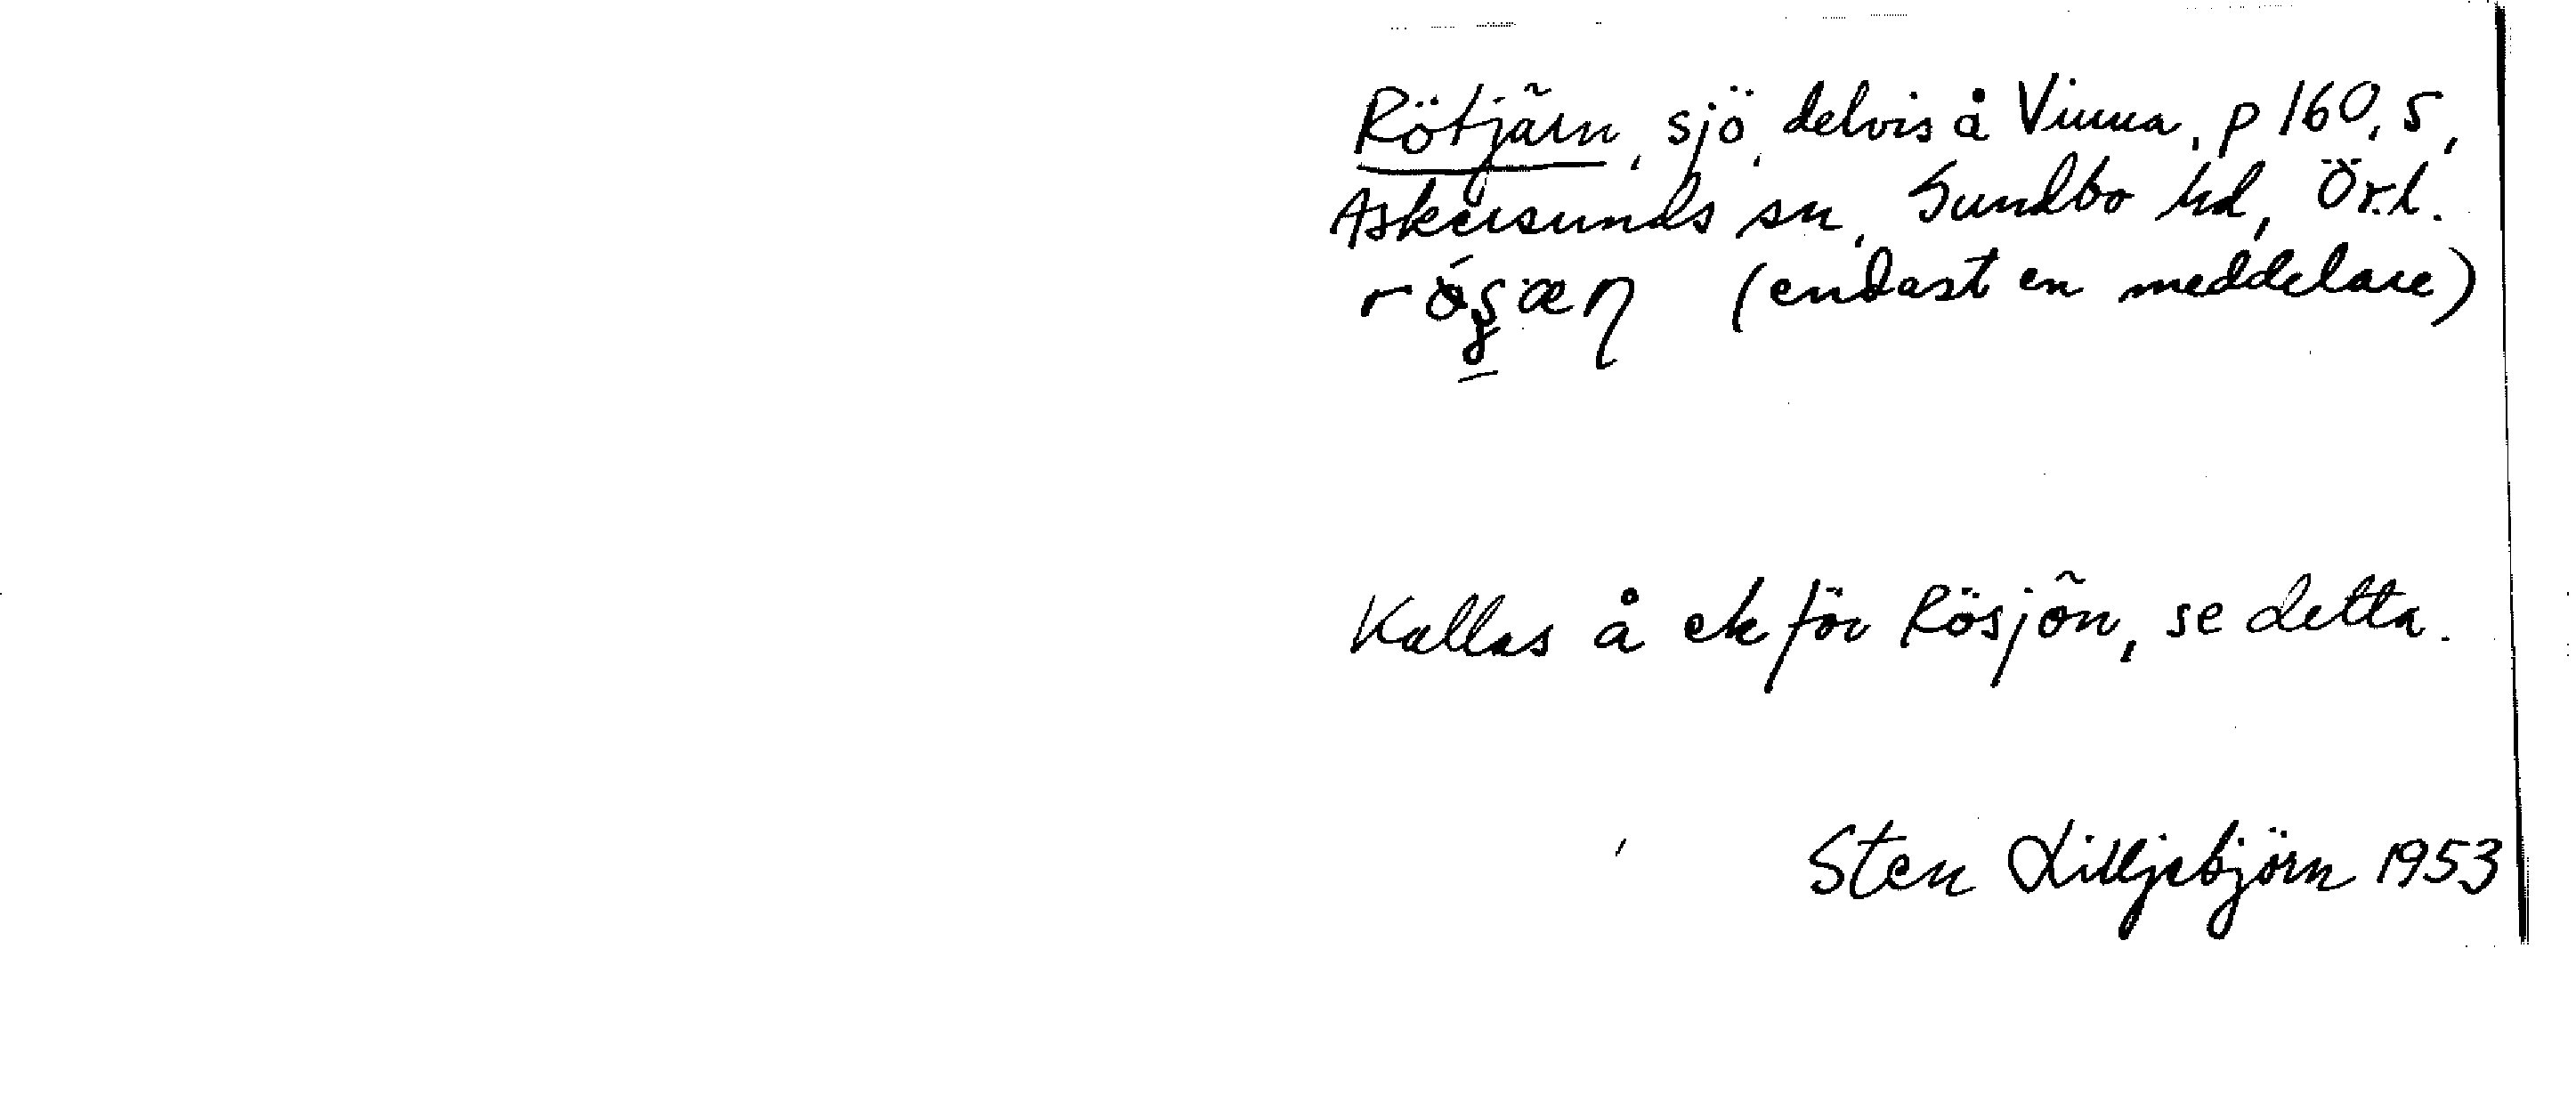 Rötjärn, sjö, delvis å Vinna, p 160, 5,
Askersunds sn, Sundbo hd, Ör.l.
(endast en meddelare)
Kallas å ek för Rösjön, se detta.
Sten Lilljebjörn 1953